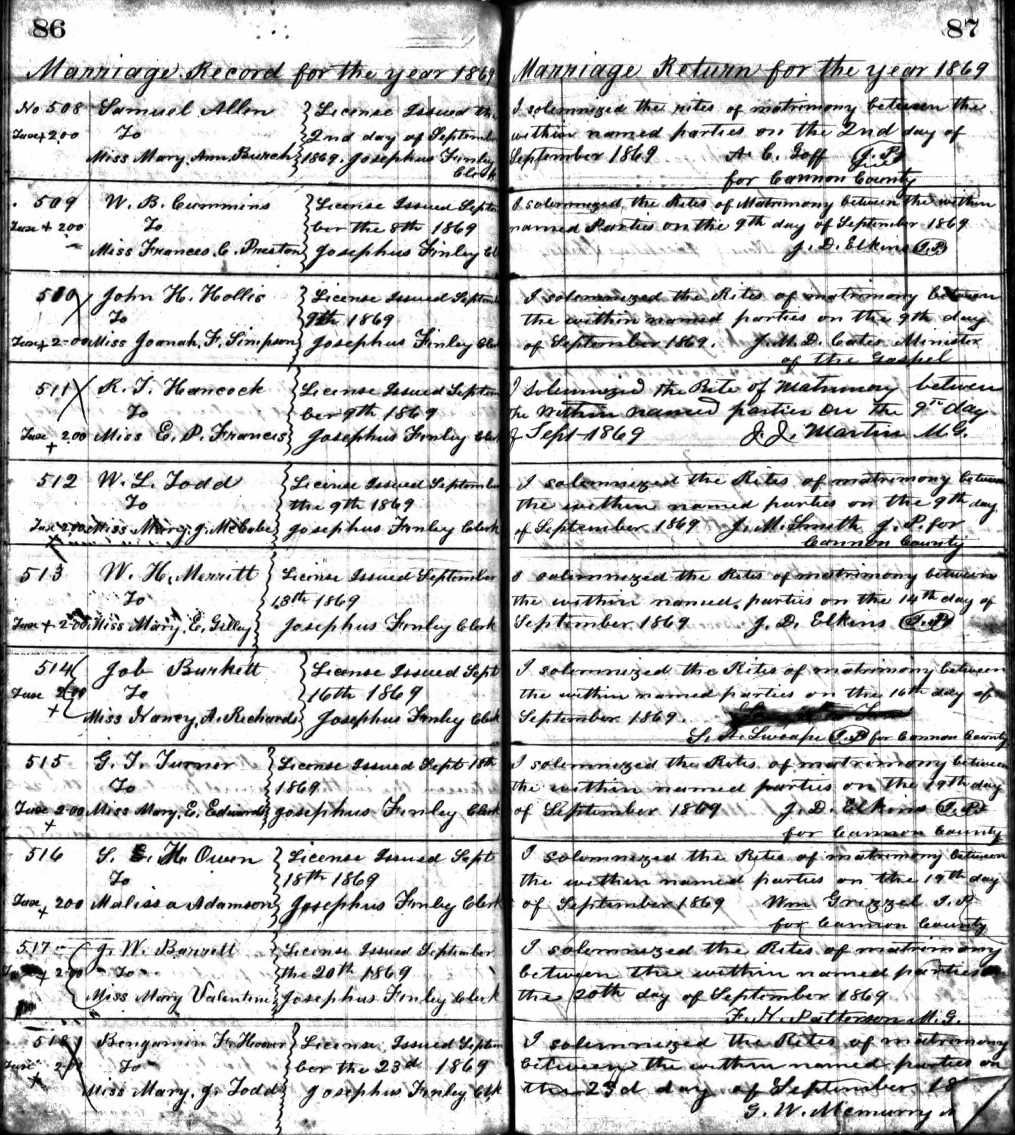 86
Marriage Record for the year 1869
No 508 Samuel Allen License Issued the
Taxe + 2.00 To 2nd day of September
Miss Mary Ann Burch 1869. Josephus Finley
Clerk
509 W. B. Cummins License Issued Septem
Taxe + 200 To ber the 8th 1869
Miss Frances C. Preston Josephus Finley Cl
510 John H. Hollis License Issued Septem
To 9th 1869
Taxe + 2.00 Miss Joanah, F. Simpson Josephus Finley Clerk
511 R. T. Hancock License Issued Septem
To ber 9th 1869
Taxe + 2.00 Miss E. P. Francis Josephus Finley Clerk
512 W. L. Todd License Issued September
To the 9th 1869
Taxe 2.00 Miss Mary, J. McCabe Josephus Finley Clerk
513 W. H. Merritt License Issued September
To 13th 1869
Taxe + 2.00 Miss Mary, E. Gilley Josephus Finley Clerk
514 Job Burkett License Issued Sept
Taxe 2.00 To 16th 1869
+ Miss Nancy, A. Richards Josephus Finley Clerk
515 G. T. Turner License Issued Sept 18th
To 1869
Taxe 2.00 Miss Mary, E. Edwards Josephus Finley Clerk
516 S. H. Owen License Issued Sept
To 18th 1869
Taxe + 200 Malissa Adamson Josephus Finley Clerk
517 J. W. Barrett License Issued September
+ 2.00 To the 20th 1869
Miss Mary Valentine Josephus Finley Clerk
518 Bengamin F. Hoover License Issued Septem
Taxe 2.00 To ber the 23d 1869
+ Miss Mary, J. Todd Josephus Finley Clk
87
Marriage Return for the year 1869
I solemnized the rites of matrimony between the
within named parties on the 2nd day of
September 1869 A. C. Goff J.P.
for Cannon County
I solemnized the Rites of Matrimony between the within
named Parties on the 9th day of September 1869
J. D. Elkins J.P.
I solemnized the Rites of matrimony between
the within named parties on the 9th day
of September 1869. J. M. D. Cates Minister
of the Gospel
I Solemnized the Rite of Matrimony between
the Within named parties on the 9th day
of Sept 1869 J. J. Martin M.G.
I solemnized the Rites of matrimony between
the within named parties on the 9th day
of September 1869 J. M. Smith J. P. for
Cannon County
I solemnized the Rites of matrimony between
the within named parties on the 14th day of
September 1869 J. D. Elkins J.P.
I solemnized the Rites of matrimony between
the within named parties on the 16th day of
September 1869.
S. A. Swope J.P for Cannon County
I solemnized the Rites of matrimony between
the within named parties on the 19th day
of September 1869 J. D. Elkins J.P.
for Cannon County
I solemnized the Rites of matrimony between
the within named parties on the 19th day
of September 1869 Wm Grizzel J. P.
for Cannon County
I solemnized the Rites of matrimony
between the within named parties on
the 20th day of September 1869
F. H. Patterson M.G.
I solemnized the Rites of matrimony
between the within named parties on
the 23d day of September 18
G. W. Mcmurry